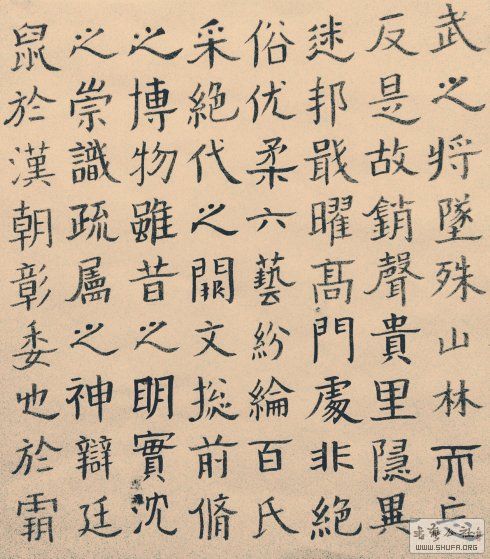 武之将墜殊山林而亡
反是故銷聲貴里隱異
迷邦戢曜髙門處非絕
俗优柔六藝紛綸百氏
采絕代之闕文揔前脩
之博物雖昔之眀實沈
之崇識疏屬之神辯廷
鼠於漢朝彰委也於霸
WWW.SHUFA.ORG